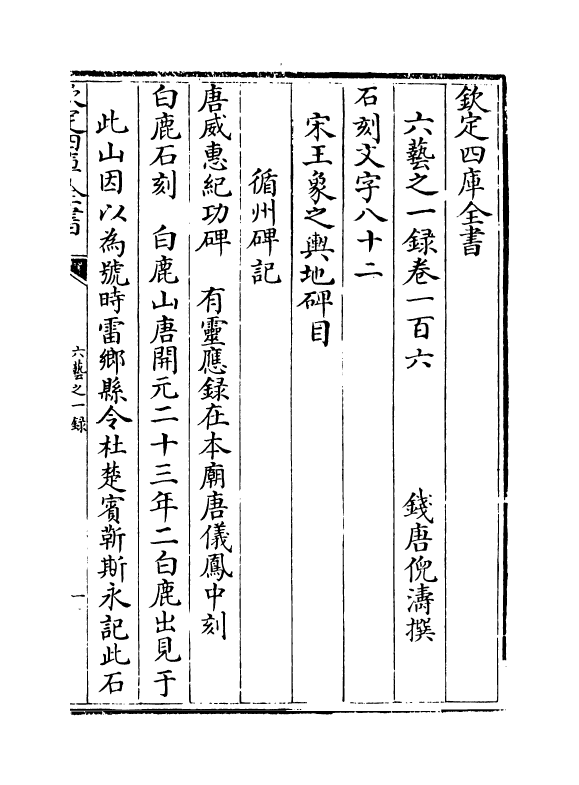 欽定四庫全書
六藝之一録卷一百六
錢唐倪濤撰
石刻文字八十二
宋王象之輿地碑目
循州碑記
唐威惠紀功碑　有靈應録在本廟唐儀鳳中刻
白鹿石刻　白鹿山唐開元二十三年二白鹿出見于
此山因以為號時雷鄉縣令杜楚賓靳斯永記此石
欽定四庫全書
六藝之一録
一